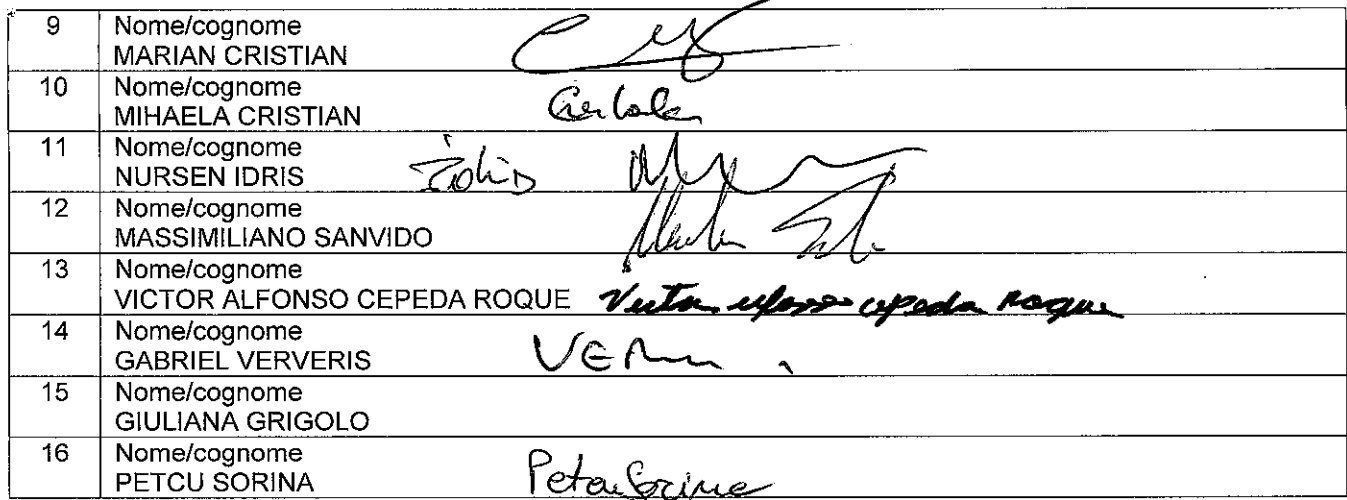 9 Nome/cognome
MARIAN CRISTIAN
10 Nome/cognome
MIHAELA CRISTIAN
11 Nome/cognome
NURSEN IDRIS
12 Nome/cognome
MASSIMILIANO SANVIDO
13 Nome/cognome
VICTOR ALFONSO CEPEDA ROQUE Victor alfonso cepeda Roque
14 Nome/cognome
GABRIEL VERVERIS
15 Nome/cognome
GIULIANA GRIGOLO
16 Nome/cognome
PETCU SORINA Petcu Sorina